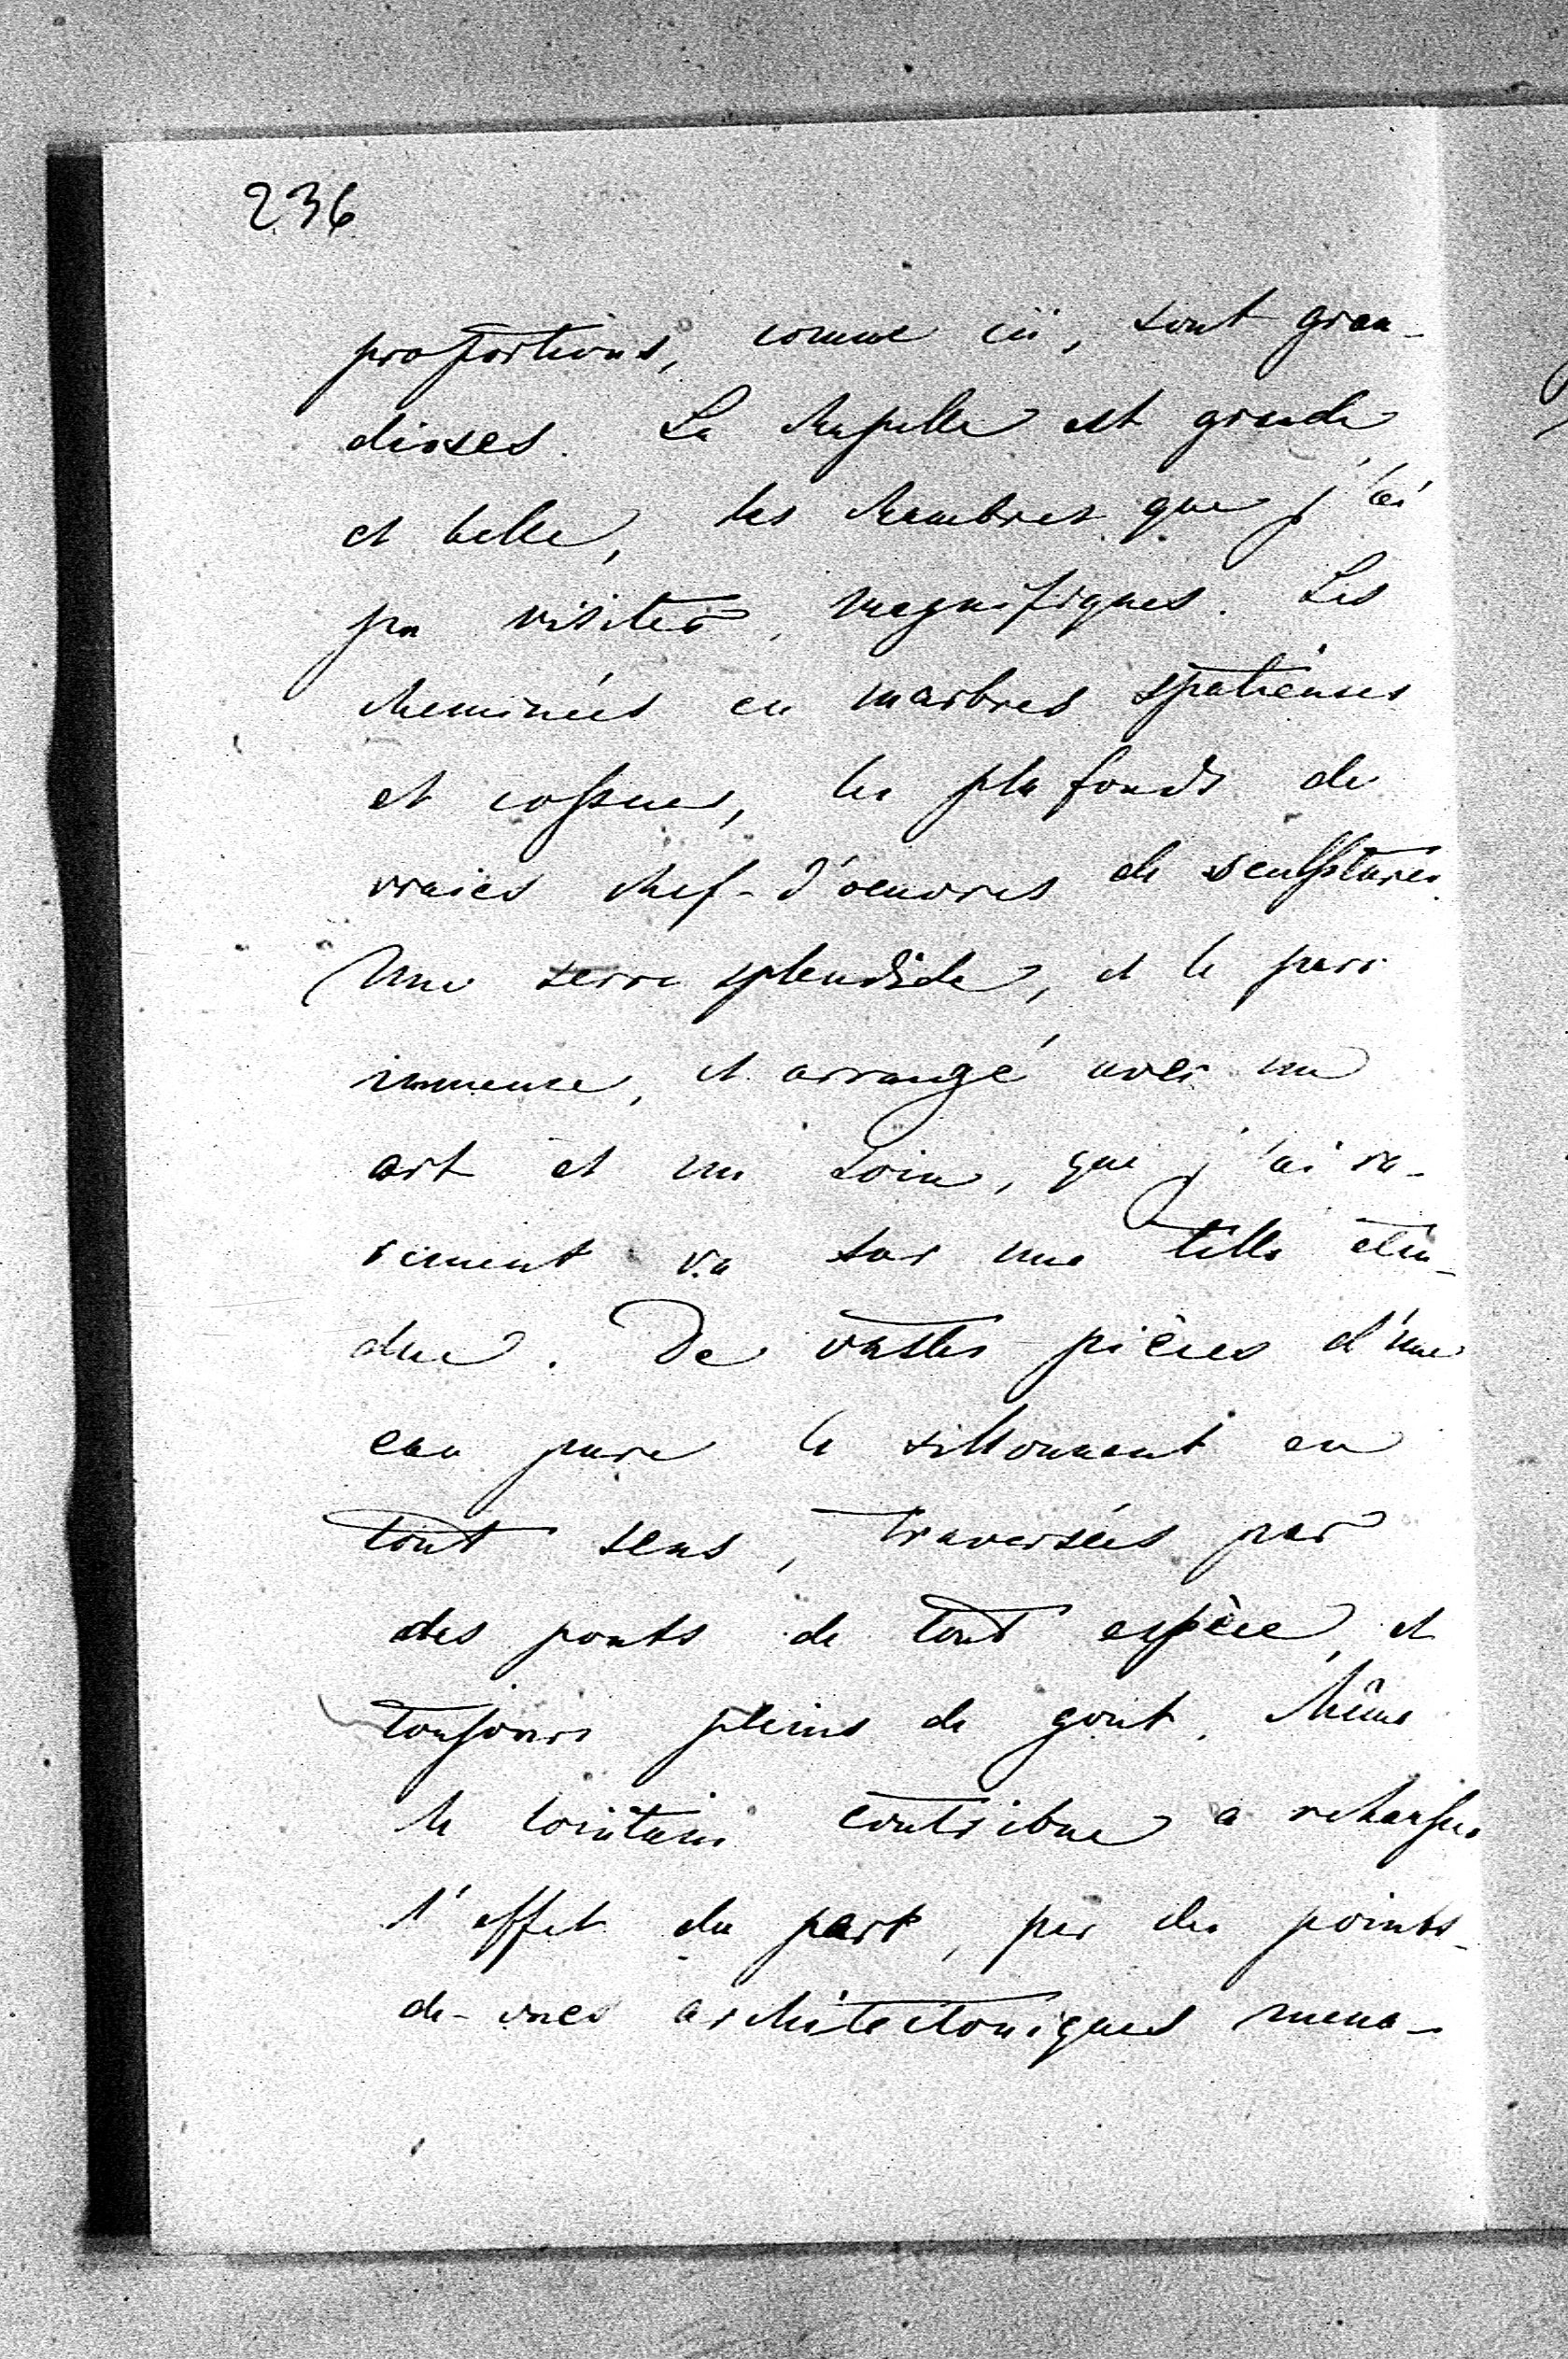 236
proportions, comme ici, sont gran-
dioses. La chapelle est grande
et belle, les chambres que j'ai
pu visiter, magnifiques. Les
cheminées en marbres spatieuses
et cossues, les plafonds de
vraies chef-d'oeuvres de sculptures.
Une serre splendide, et le parc
immense, et arrangé avec un
art et un soin, que j'ai ra-
rement vu sur une telle éten-
due. De vastes pièces d'une
eau pure le sillonnent en
tout sens, traversées par
des ponts de tout espèce, et
toujours pleins de gout. Même
le lointain contribue a rehausser
l'effet du park, par des points-
de-vues architectoniques mena-